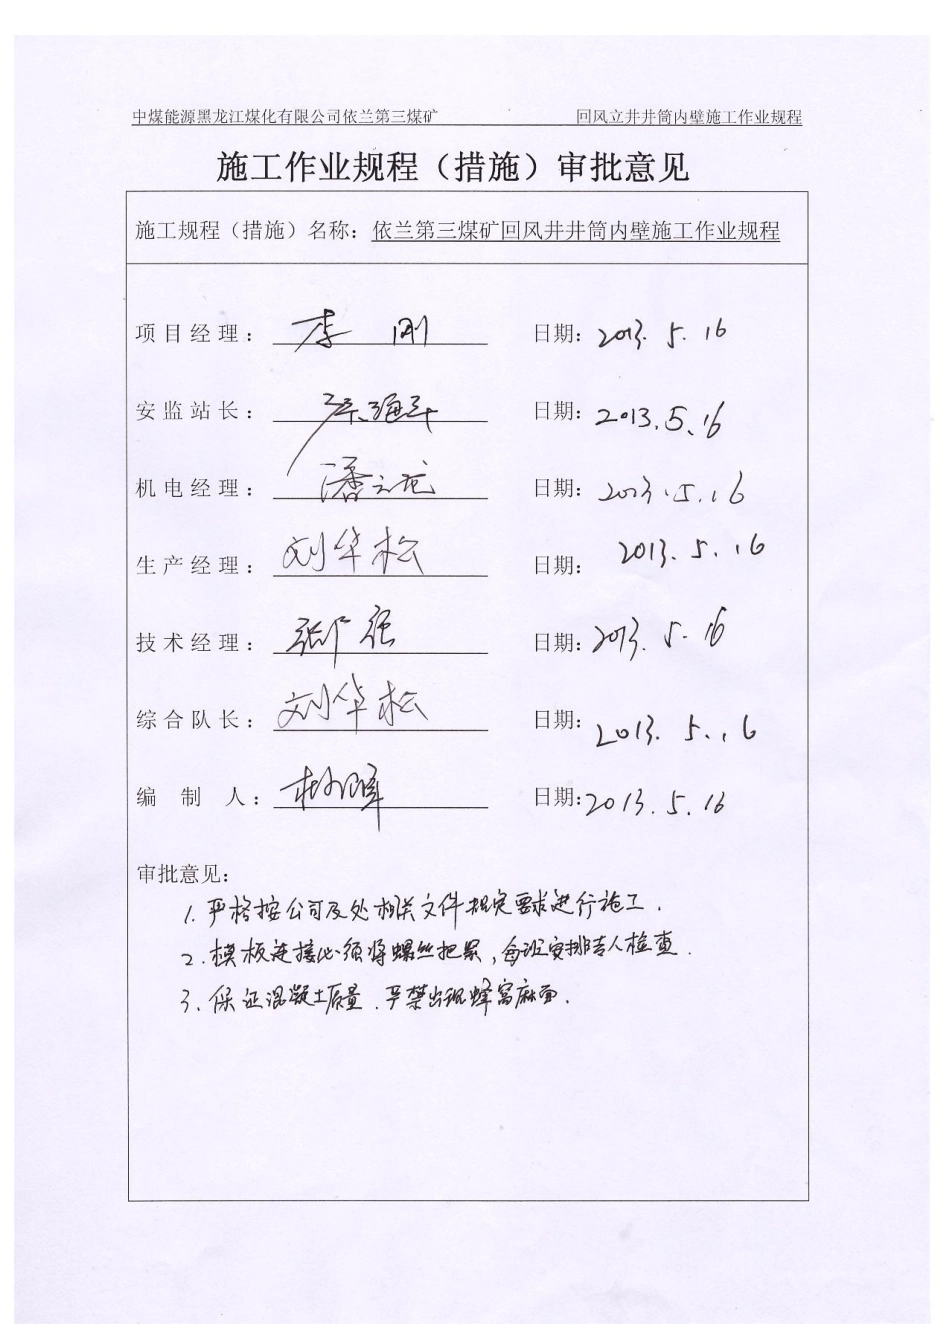 中煤能源黑龙江煤化有限公司依兰第三煤矿 回风立井井筒内壁施工作业规程
施工作业规程（措施）审批意见
施工规程（措施）名称：依兰第三煤矿回风井井筒内壁施工作业规程
项目经理： 李刚 日期：2013.5.16
安监站长： 日期：2013.5.16
机电经理： 潘云龙 日期：2013.5.16
生产经理： 刘华松 日期：2013.5.16
技术经理： 张广强 日期：2013.5.16
综合队长： 刘华松 日期：2013.5.16
编制人： 日期：2013.5.16
审批意见：
1.严格按公司及处相关文件规定要求进行施工.
2.模板连接必须将螺丝把紧,每班安排专人检查.
3、保证混凝土质量.严禁出现蜂窝麻面.